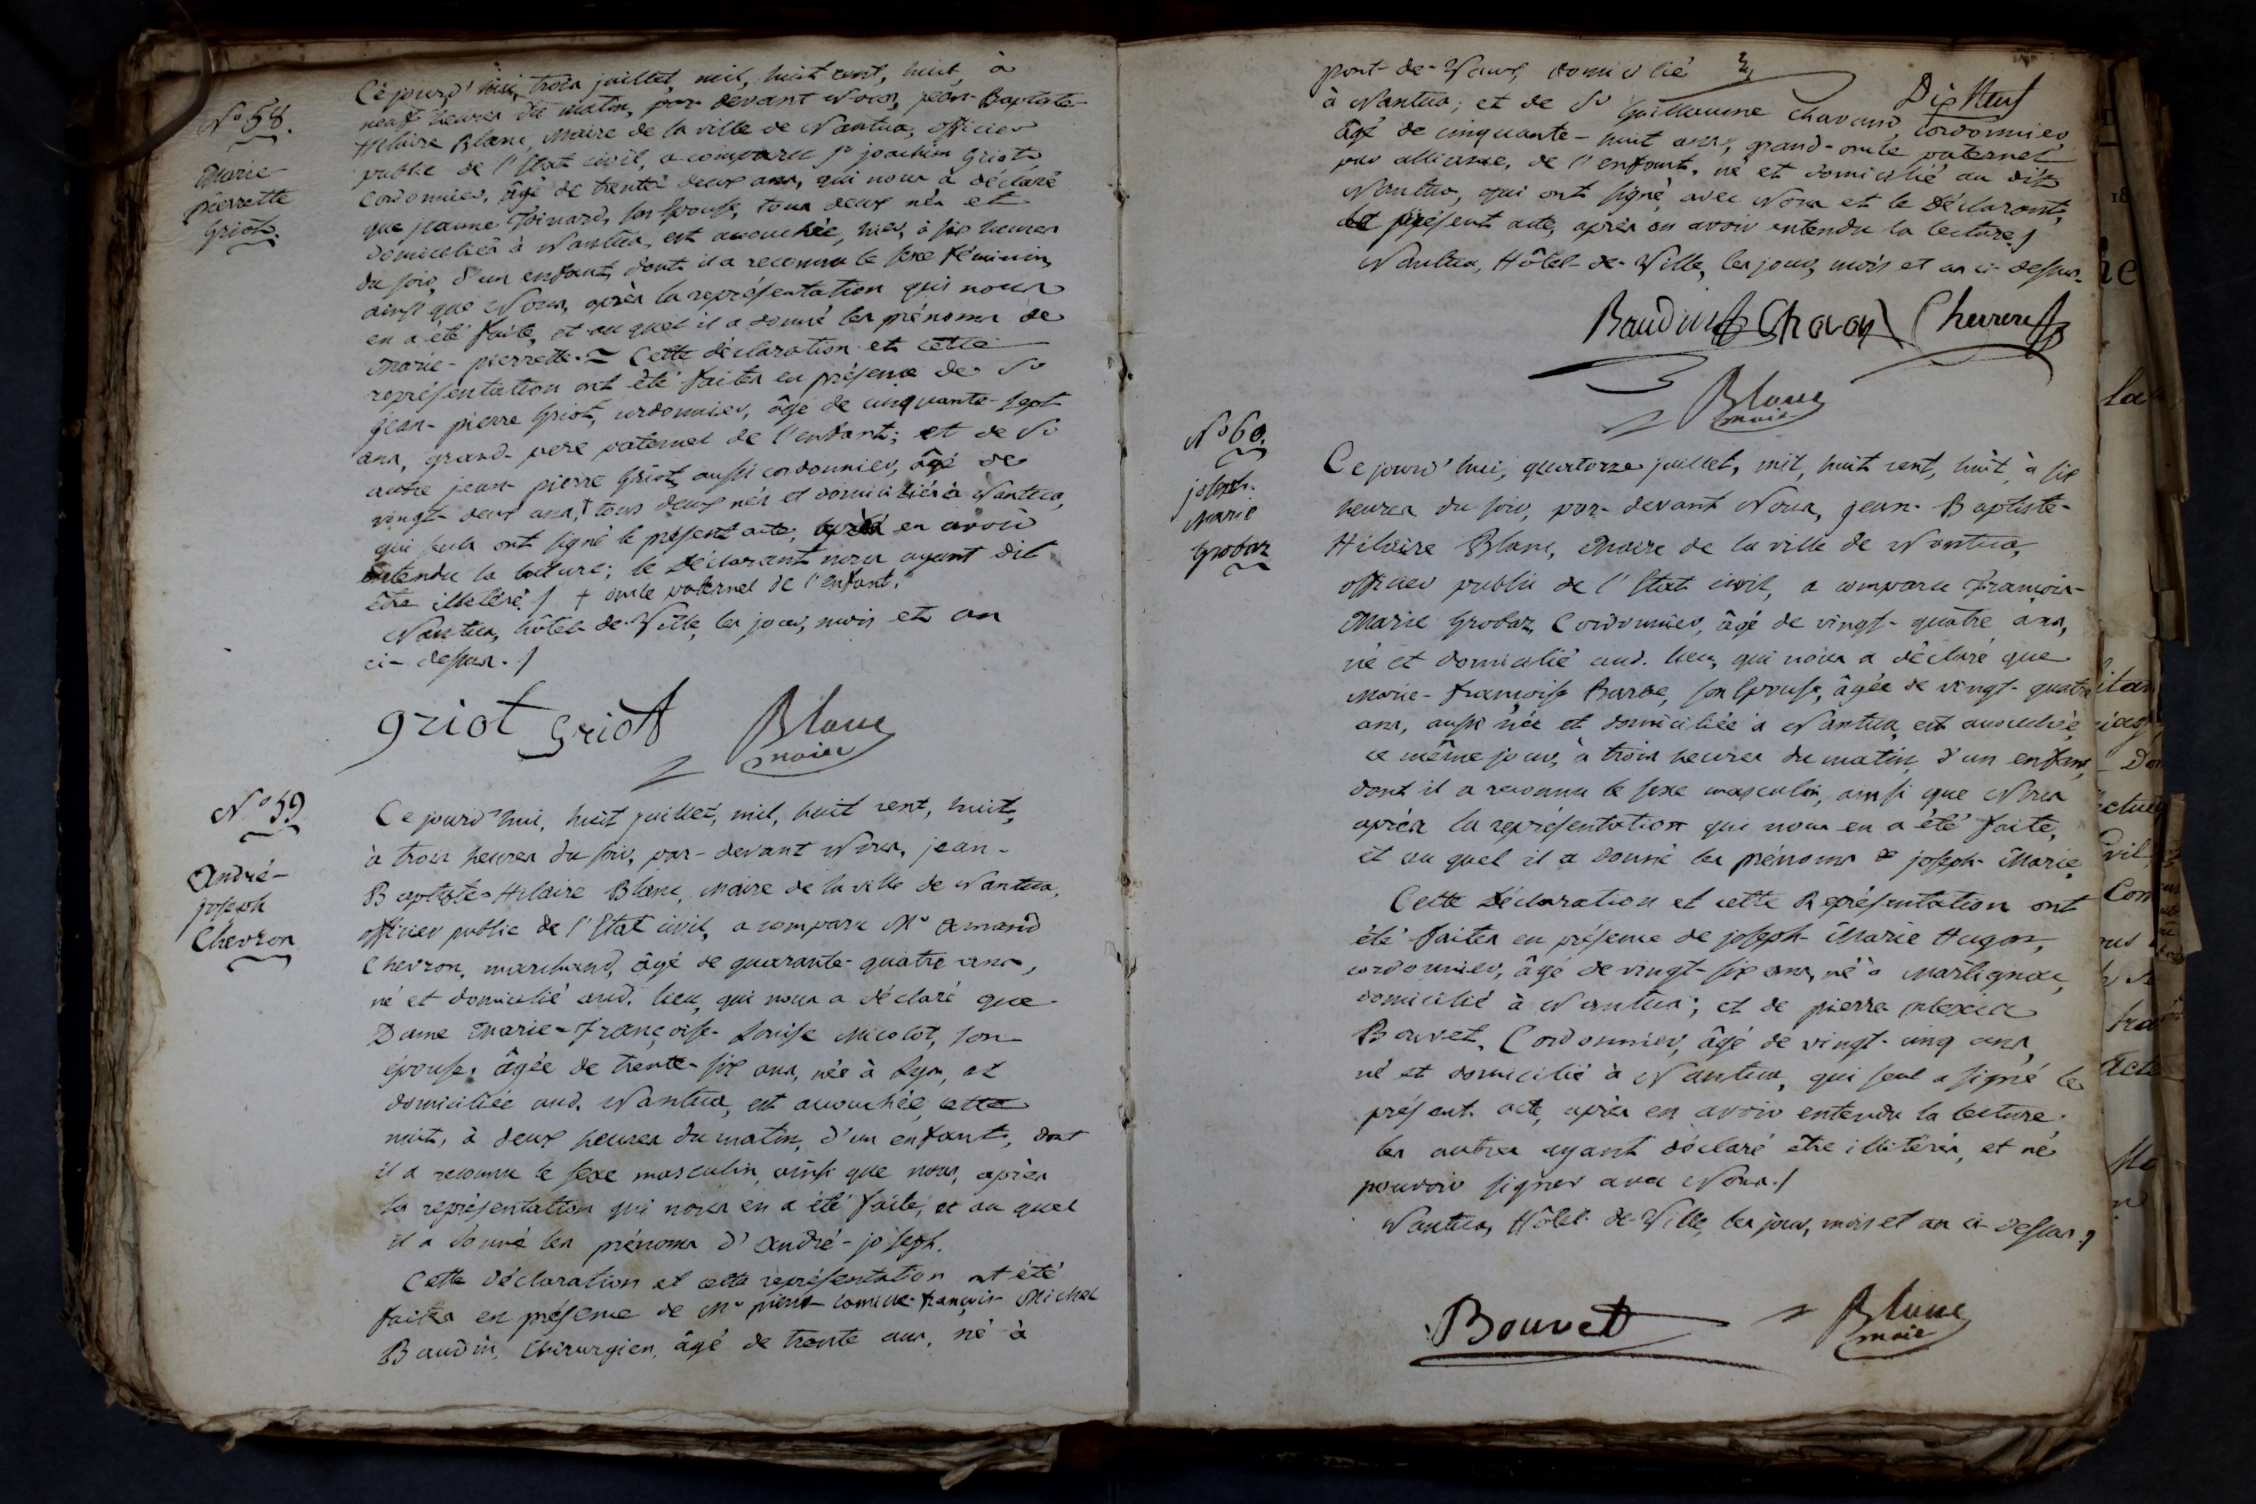 N.o 58.
Marie
pierrette
Griot.
Cejourd'hui, trois juillet, mil, huit cent, huit, à
neuf heures du matin, par-devant Nous, jean-Baptiste-
Hilaire Blanc, Maire de la ville de Nantua, officier
public de l'Etat civil, a comparu Sr joachim Griot
Cordonnier, âgé de trente-deux ans, qui nous a déclaré
que jeanne Joinard, son Epouse, tous deux nés et
domiciliés à Nantua, est accouchée, hier, à six heures
du soir, d'un enfant dont il a reconnu le sexe féminin,
ainsi que Nous, après la représentation qui nous
en a été faite, et au quel il a donné les prénoms de
Marie-pierrette. = Cette déclaration et cette
représentation ont été faites en présence de Sr
jean-pierre Griot, cordonnier, âgé de cinquante-sept
ans, grand-pere paternel de l'enfant; et de Sr
autre jean-pierre Griot, aussi cordonnier, âgé de
vingt-deux ans, † tous deux nés et domiciliés à Nantua,
qui seuls ont signé le présent acte, après en avoir
entendu la lecture; le Déclarant nous ayant dit
être illetéré ./ † oncle paternel de l'enfant.
Nantua, hôtel-de-Ville, les jour, mois et an
ci-dessus ./
griot Griot Blanc
maire
N.o 59
André-
joseph
Chevron
Ce jourd'hui, huit juillet, mil, huit cent, huit,
à trois heures du soir, par-devant Nous, jean-
Baptiste-Hilaire Blanc, Maire de la ville de Nantua,
officier public de l'Etat civil, a comparu Mr Amand
Chevron, marchand, âgé de quarante-quatre ans,
né et domicilié aud. lieu, qui nous a déclaré que
Dame Marie-Françoise-Louise Nicolot, son
épouse, âgée de trente-six ans, née à Lyon, et
domiciliée aud. Nantua, est accouchée cette
nuit, à deux heures du matin, d'un enfant, dont
il a reconnu le sexe masculin, ainsi que nous, après
la représentation qui nous en a été faite, et au quel
il a donné les prénoms d'André-joseph.
Cette déclaration et cette représentation ont été
faites en présence de Mr pierre françois-Michel
Baudin, Chirurgien, âgé de trente ans, né à
pont-de-Vaux, domicilié
Dix Neuf
à Nantua; et de Sr Guillaume Chavand, Cordonnier
âgé de cinquante-huit ans, grand-oncle paternel
par alliance, de l'enfant, né et domicilié au dit
Nantua, qui ont signé, avec Nous et le Déclarant,
le présent acte, après en avoir entendu la lecture ./
Nantua, Hôtel-de-Ville, les jour, mois et an ci-dessus.
Baudin Chavan Chevron
Blanc
maire
N.o 60.
joseph-
Marie
Grobaz
Ce jourd'hui, quatorze juillet, mil, huit cent, huit, à six
heures du soir, par-devant Nous, jean-Baptiste-
Hilaire Blanc, Maire de la ville de Nantua,
officier public de l'Etat civil, a comparu François-
Marie Grobaz, Cordonnier, âgé de vingt-quatre ans,
né et domicilié aud. lieu, qui nous a déclaré que
Marie-françoise Barbe, son Epouse, âgée de vingt-quatre
ans, aussi née et domiciliée à Nantua, est accouchée
ce même jour, à trois heures du matin, d'un enfant,
dont il a reconnu le sexe masculin, ainsi que Nous
après la représentation qui nous en a été faite,
et au quel il a donné les prénoms de joseph-Marie.
Cette Déclaration et cette Représentation ont
été faites en présence de joseph-Marie Hugon,
cordonnier, âgé de vingt-six ans, né à Martignac,
domicilié à Nantua; et de pierre Alexis
Bouvet, Cordonnier, âgé de vingt-cinq ans,
né et domicilié à Nantua, qui seul a signé le
présent acte, après en avoir entendu la lecture.
les autres ayant déclaré être illitérés, et ne
pouvoir signer avec Nous ./
Nantua, Hôtel-de-Ville, les jour, mois et an ci-dessus ./
Bouvet Blanc
maire